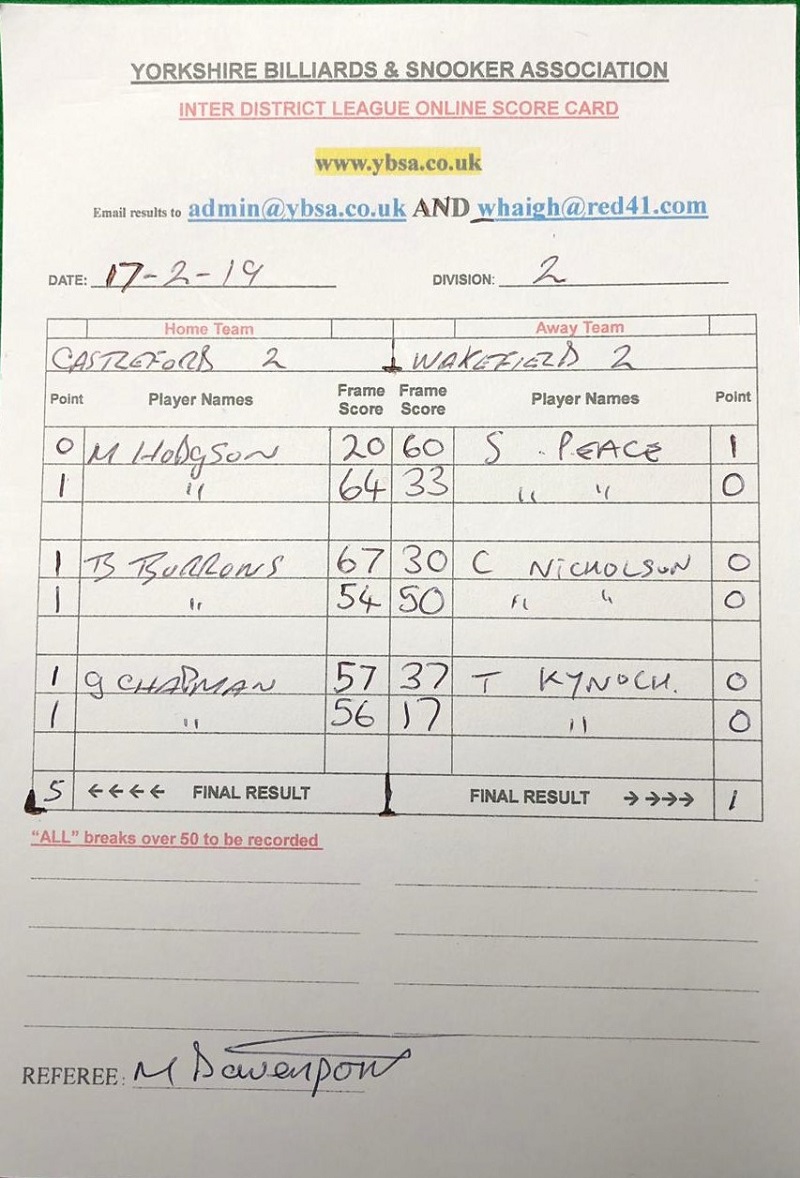 YORKSHIRE BILLIARDS & SNOOKER ASSOCIATION
INTER DISTRICT LEAGUE ONLINE SCORE CARD
www.ybsa.co.uk
Email results to admin@ybsa.co.uk AND whaigh@red41.com
DATE: 17-2-19 DIVISION: 2
Home Team Away Team
CASTLEFORD 2 WAKEFIELD 2
Point Player Names Frame Score Frame Score Player Names Point
0 M HODGSON 20 60 S . PEACE 1
1 " 64 33 " " 0
1 B BURROWS 67 30 C NICHOLSON 0
1 " 54 50 " " 0
1 G CHAPMAN 57 37 T KYNOCH. 0
1 " 56 17 " 0
5 ←←←← FINAL RESULT FINAL RESULT →→→→ 1
“ALL” breaks over 50 to be recorded
REFEREE: M Davenport